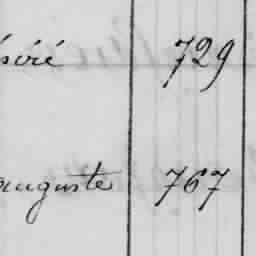 ésiré 729
auguste 767